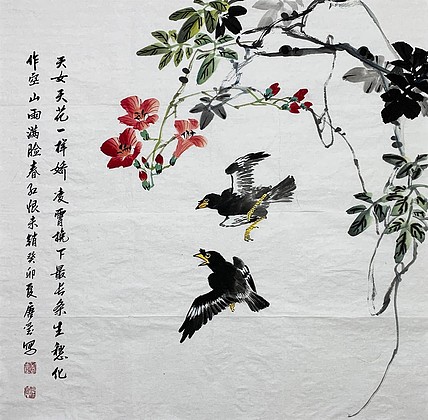 天女天花一样娇凌霄枝下最长条生愁化
作空山雨满脸春红恨未销癸卯夏 写